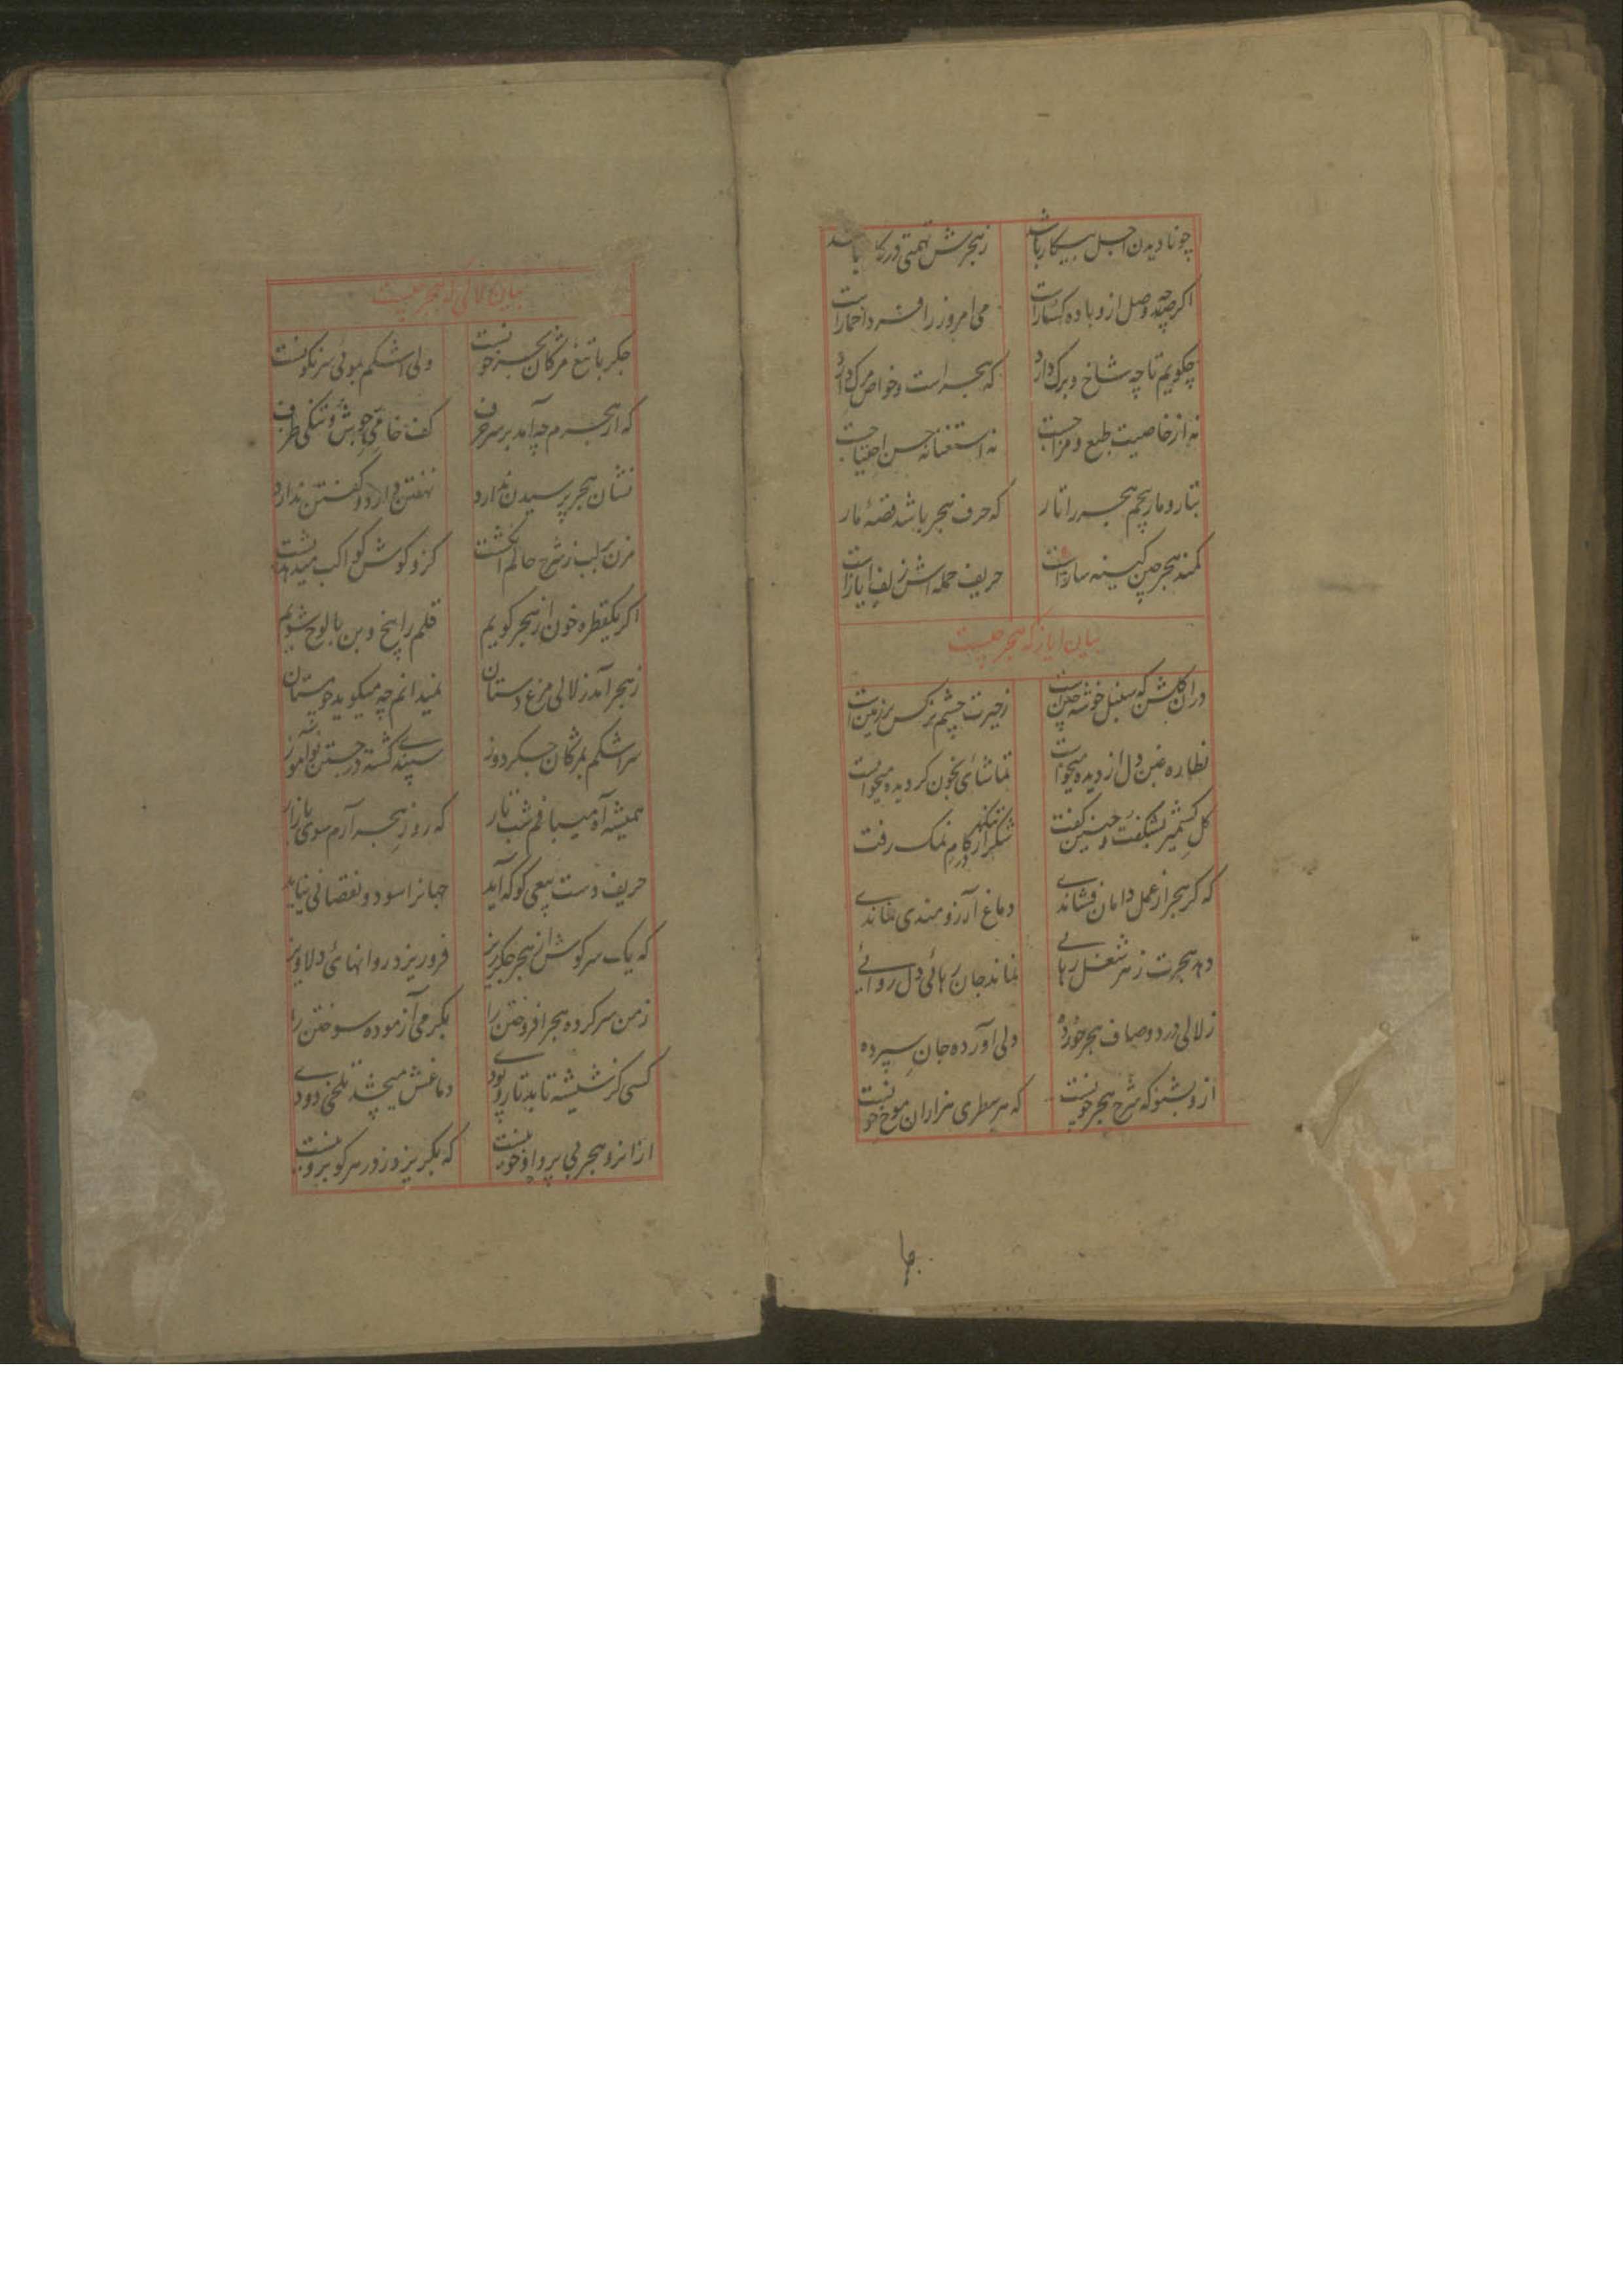 چو نادیدن اجل بیکار باشد زهجرش تهمتی در کا باشد
اکرچه وصل ازو باده کسارات می امروز را فردا خمارات
چکویم تا چه شاخ و برک دارد که هجر است و خواص مرک دارد
نه از خاصیت طبع و مزاجت نه استغنا نه حسن احتیاجت
بتار و مار پیچم هجر را تار که حرف هجر باشد قصهٔ مار
کمند هجر چین کینه سازات حریف حمله اش زلف ایازات
بیان ایاز که هجر چیست
دران کلشن که سنبل خوشه چین است زحیرت چشم نرکس بر زمین است
نظاره عین دل از دیده میخواست تماشای بخون کردیده میخواست
کل کشمیر بشکفت و چنین کفت شکر از تنکنا کام نمک رفت
که کر هجر از عمل دامان فشاندی دماغ آرزومندی نماندی
دهد هجرت زهر شغل رهایی نماند جان رهائی دل روائے
زلالی درد و صاف هجر خورده دلی آورده جان سپرده
ازو بشنو که شرح هجر خونیست که هر سطری هزاران موج خونیست
بیان زلالی که هجر چیست
جکر با تیغ مژکان بحر خونست ولی اشکم بوئی سرنکونست
که از هجرم چه آمد بر سر حرف کف خامی جوش و تنکی ظرف
نشان هجر پرسیدن ندارد نهفتن دارد و کفتن ندارد
مزن بر لب ز شرح حالم انکشت کزو کوش کواکب میدهد پشت
اکر یکقطره خون از هجر کویم قلم را بیخ و بن با لوح شویم
زهجر آمد زلالی مرغ دستان نمیدانم چه میکوید چو مستان
سر اشکم بمژکان جکردوز سپندے کشته در جستن نوآموز
همیشه آه میبافم شب تار که روز هجر آرم سوی بازار
حریف دست پیعی کو که آید جهانرا سود و نقصانی نیاید
که یک سر کوش از هجر جکرریز فروریزد روانهائی دلاویز
زمن سر کرده هجر افروختن را بکرمی آزموده سوختن را
کسی کز شیشه تابد تار و پودے دماغش میچشد تلخی دودے
ازانرو هجر بی پروا و خونیست که بکریزد ز در هر کو برونیست